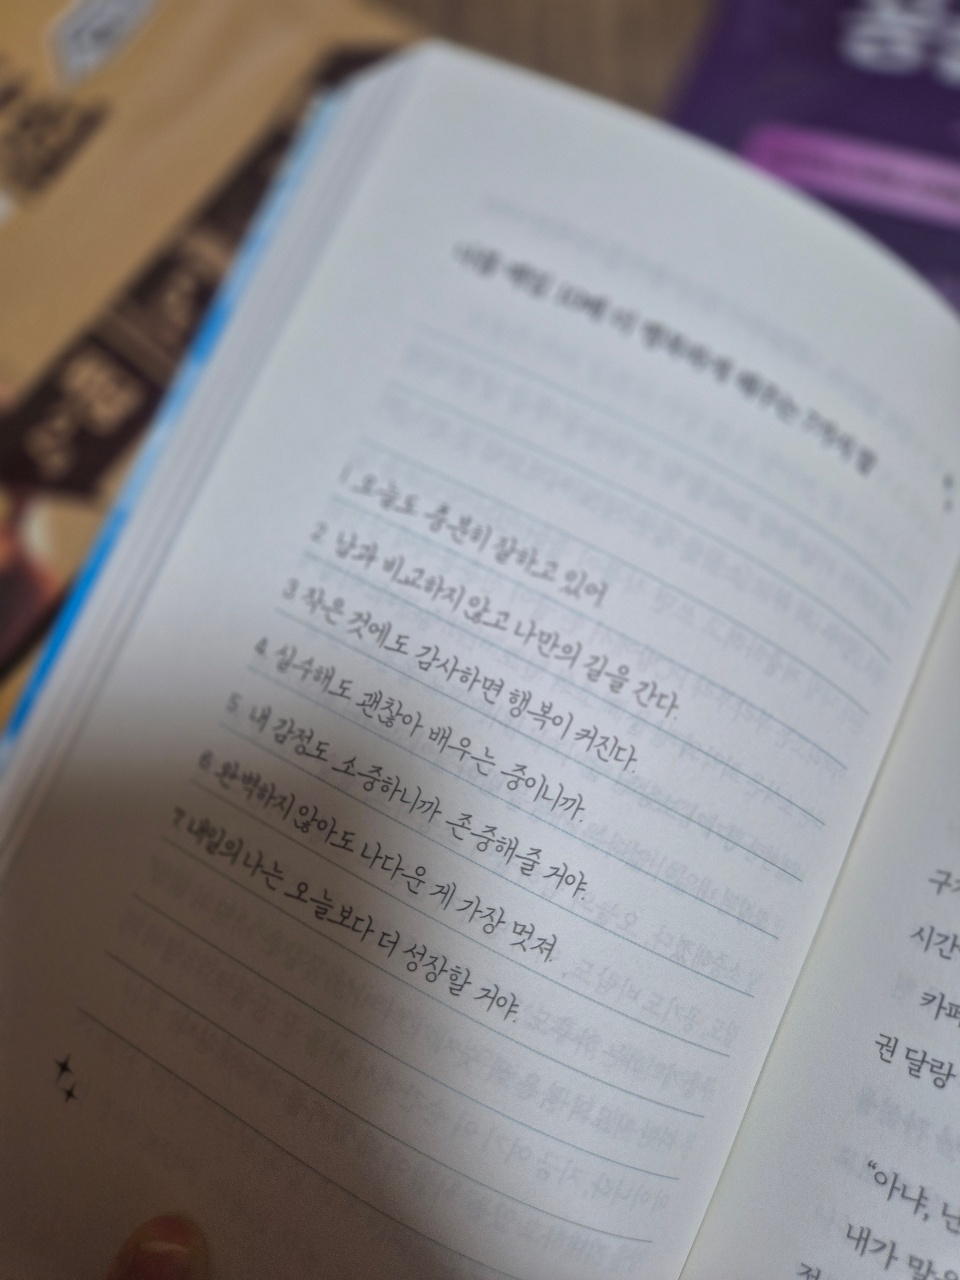 나를 매일 10배 더 행복하게 해주는 7가지 말
1 오늘도 충분히 잘하고 있어
2 남과 비교하지 않고 나만의 길을 간다.
3 작은 것에도 감사하면 행복이 커진다.
4 실수해도 괜찮아 배우는 중이니까.
5 내 감정도 소중하니까 존중해줄 거야.
6 완벽하지 않아도 나다운 게 가장 멋져.
7 내일의 나는 오늘보다 더 성장할 거야.
시간
권 달랑
"아냐, 난
내가